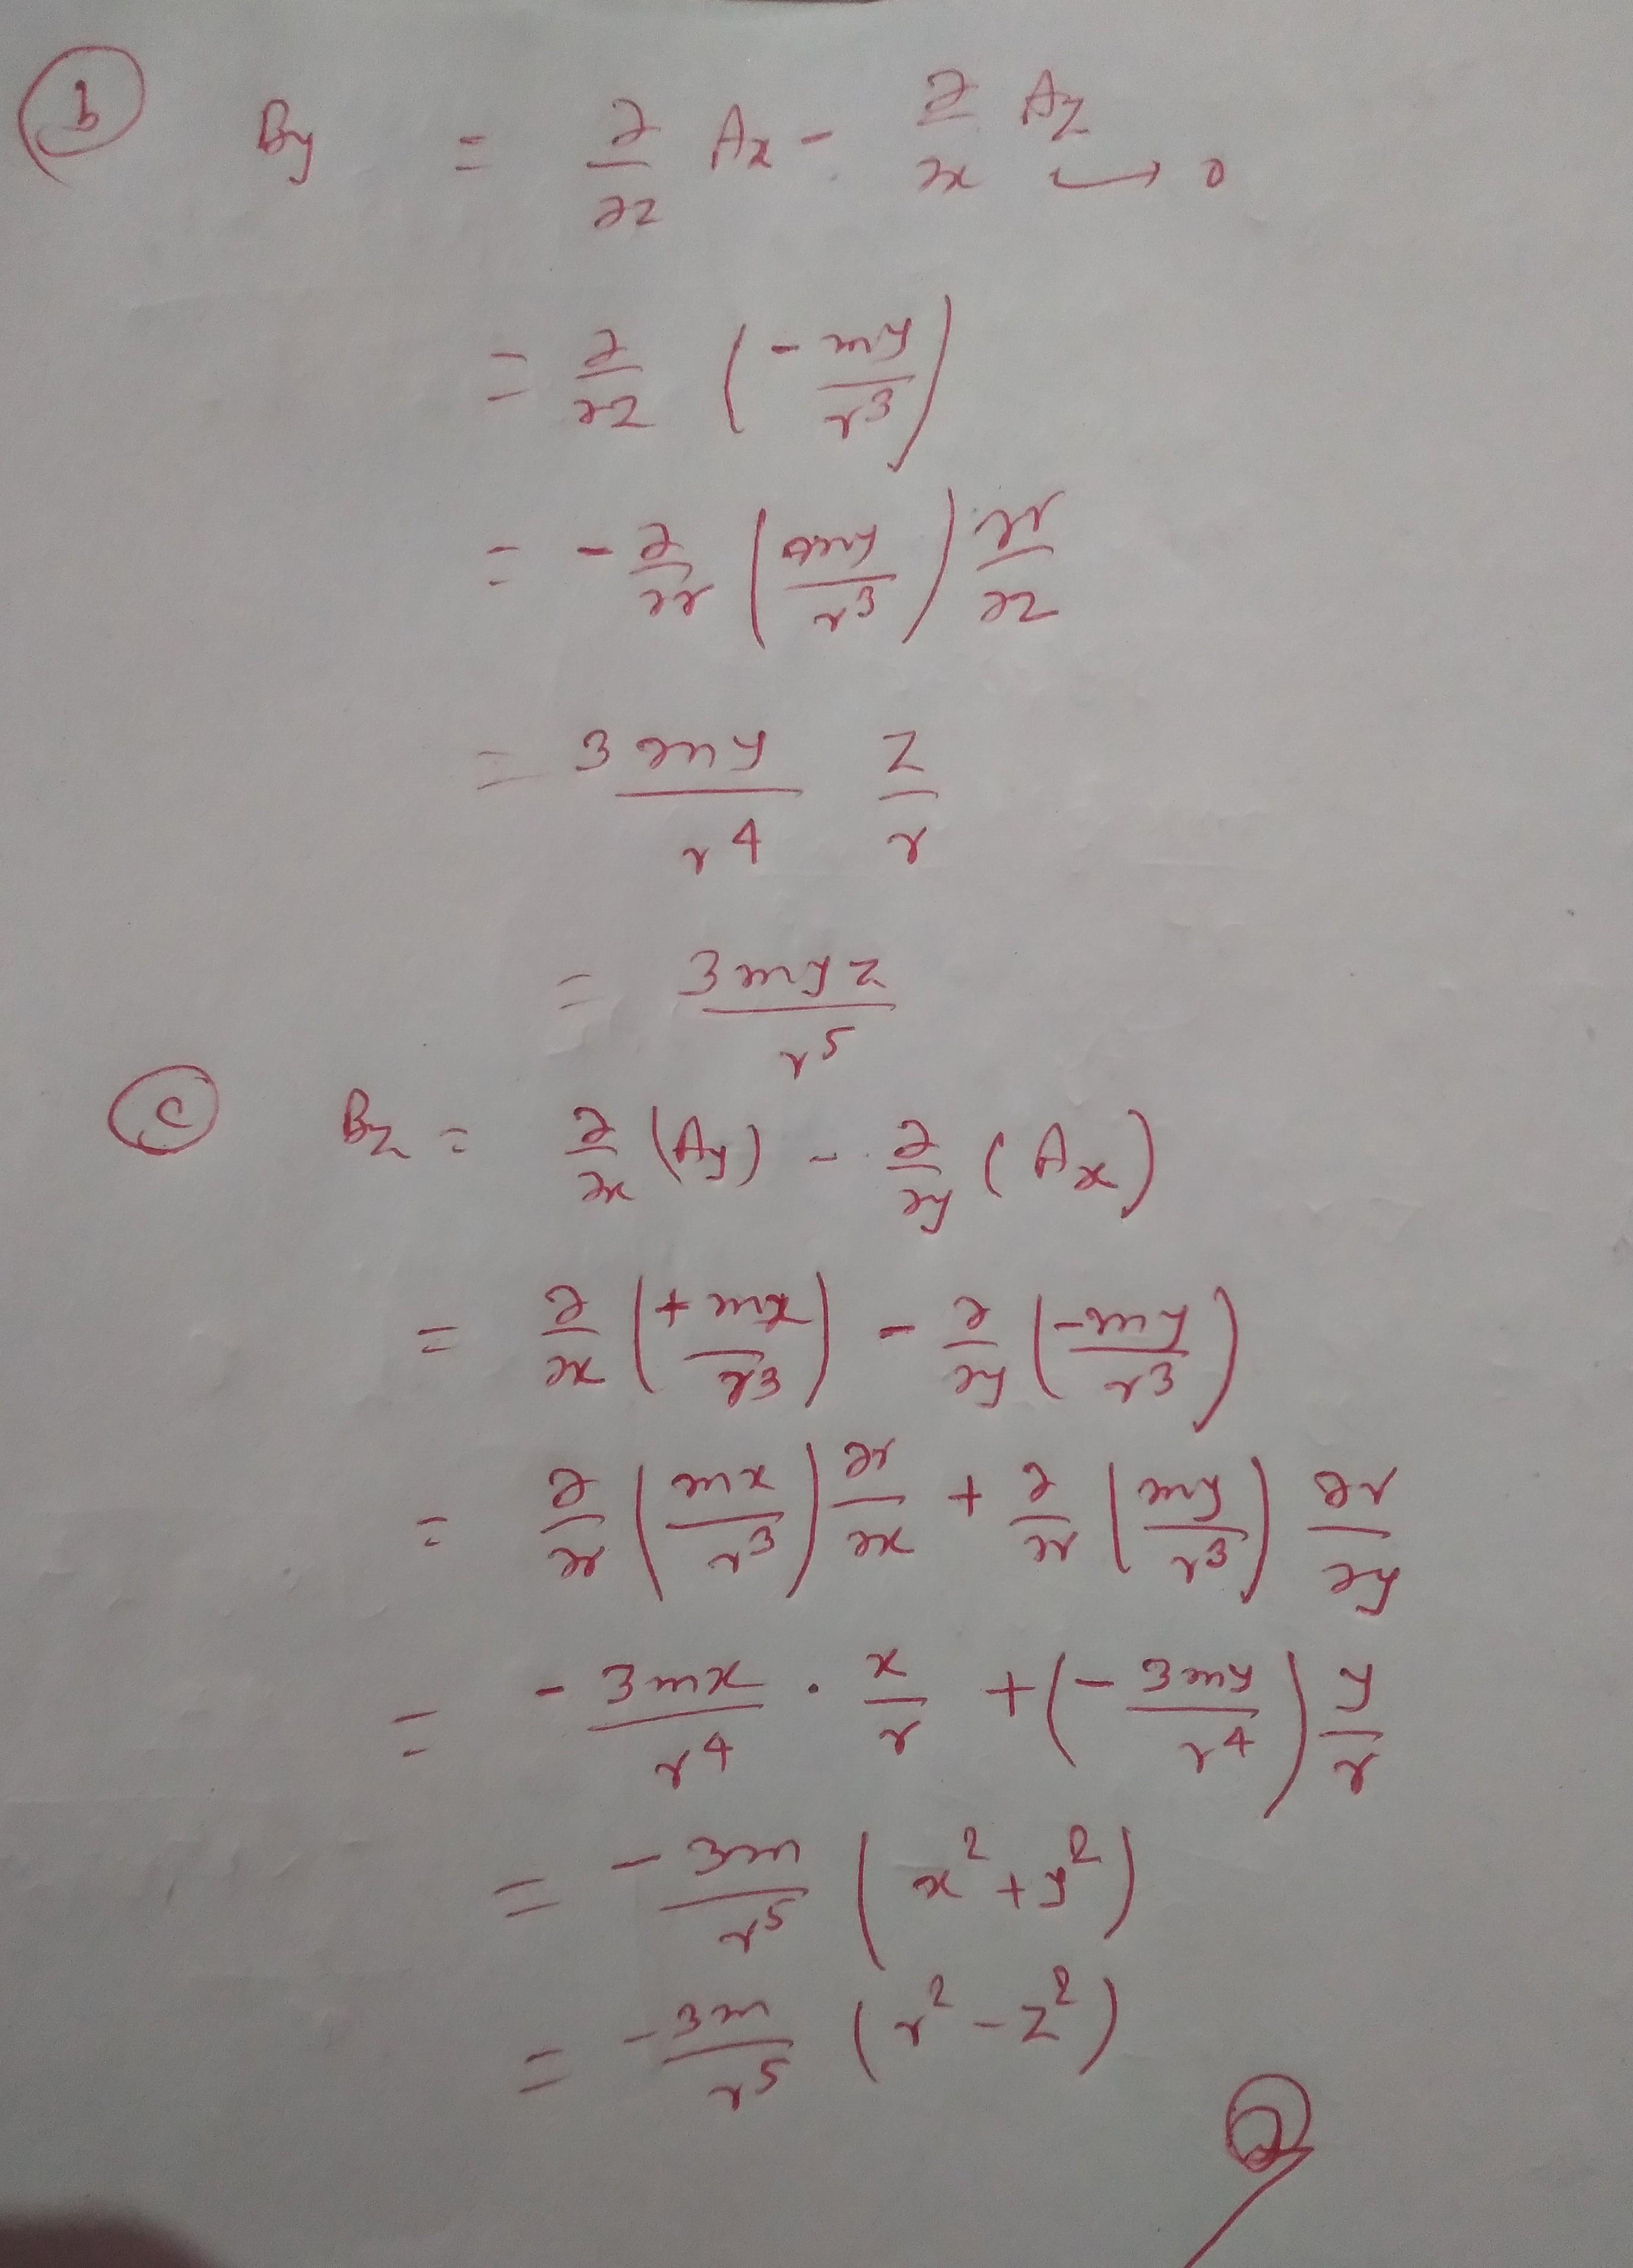 (b) By = ∂/∂z Ax - ∂/∂x Az → 0
= ∂/∂z (- my/r³)
= - ∂/∂r (my/r³) ∂r/∂z
= 3my/r⁴ z/r
= 3myz/r⁵
(c) Bz = ∂/∂x (Ay) - ∂/∂y (Ax)
= ∂/∂x (+mx/r³) - ∂/∂y (-my/r³)
= ∂/∂r (mx/r³) ∂r/∂x + ∂/∂r (my/r³) ∂r/∂y
= - 3mx/r⁴ · x/r + (- 3my/r⁴) y/r
= -3m/r⁵ (x² + y²)
= -3m/r⁵ (r² - z²)
(2)